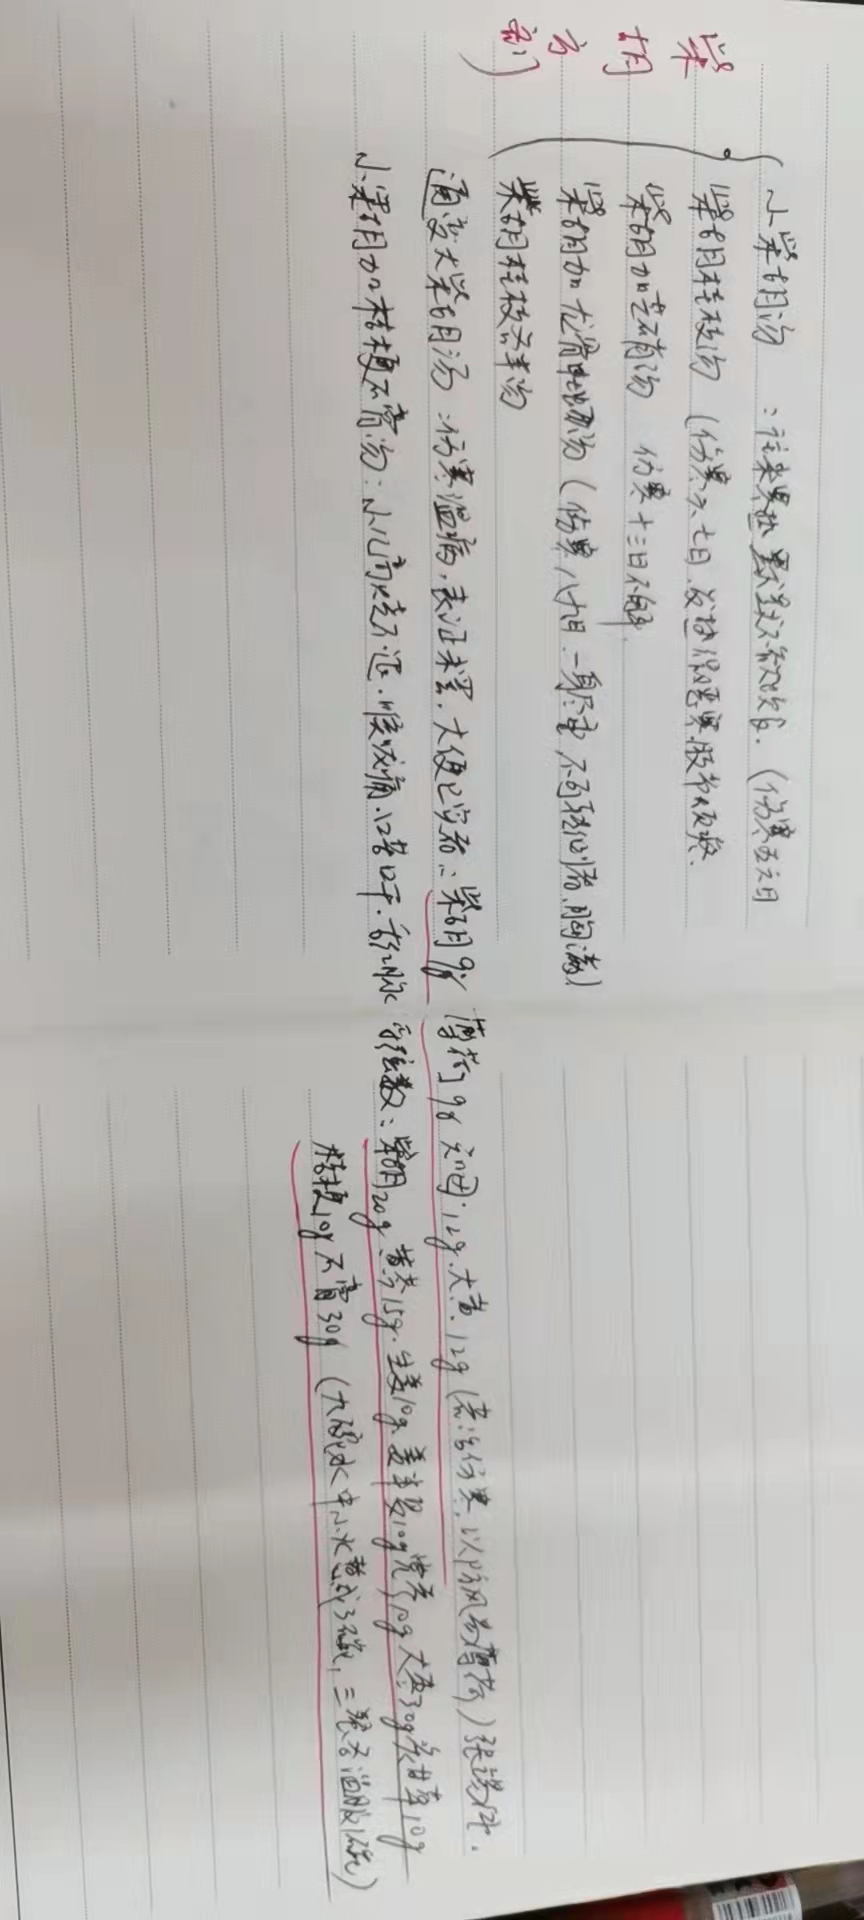 柴胡方剂
小柴胡汤：往来寒热 默默不欲饮食.（伤寒五六日
柴胡桂枝汤（伤寒六七日、发热微恶寒.肢节烦疼.
柴胡加芒硝汤 伤寒十三日不解.
柴胡加龙骨牡蛎汤（伤寒八九日.一身尽重 不可转侧者、胸满）
柴胡桂枝干姜汤
通变大柴胡汤：伤寒温病、表证未罢.大便已实者：柴胡9g 薄荷9g 知母.12g.大黄.12g（若治伤寒.以防风易薄荷）张锡纯.
小柴胡加桔梗石膏汤：小儿高烧不退.喉咙痛.口苦口干.舌红脉 弦数：柴胡20g 黄芩15g.生姜10g 姜半夏10g 党参10g 大枣30g 炙甘草10g
桔梗10g 石膏30g（九碗水中小火煮成3碗，三餐 温服1碗）